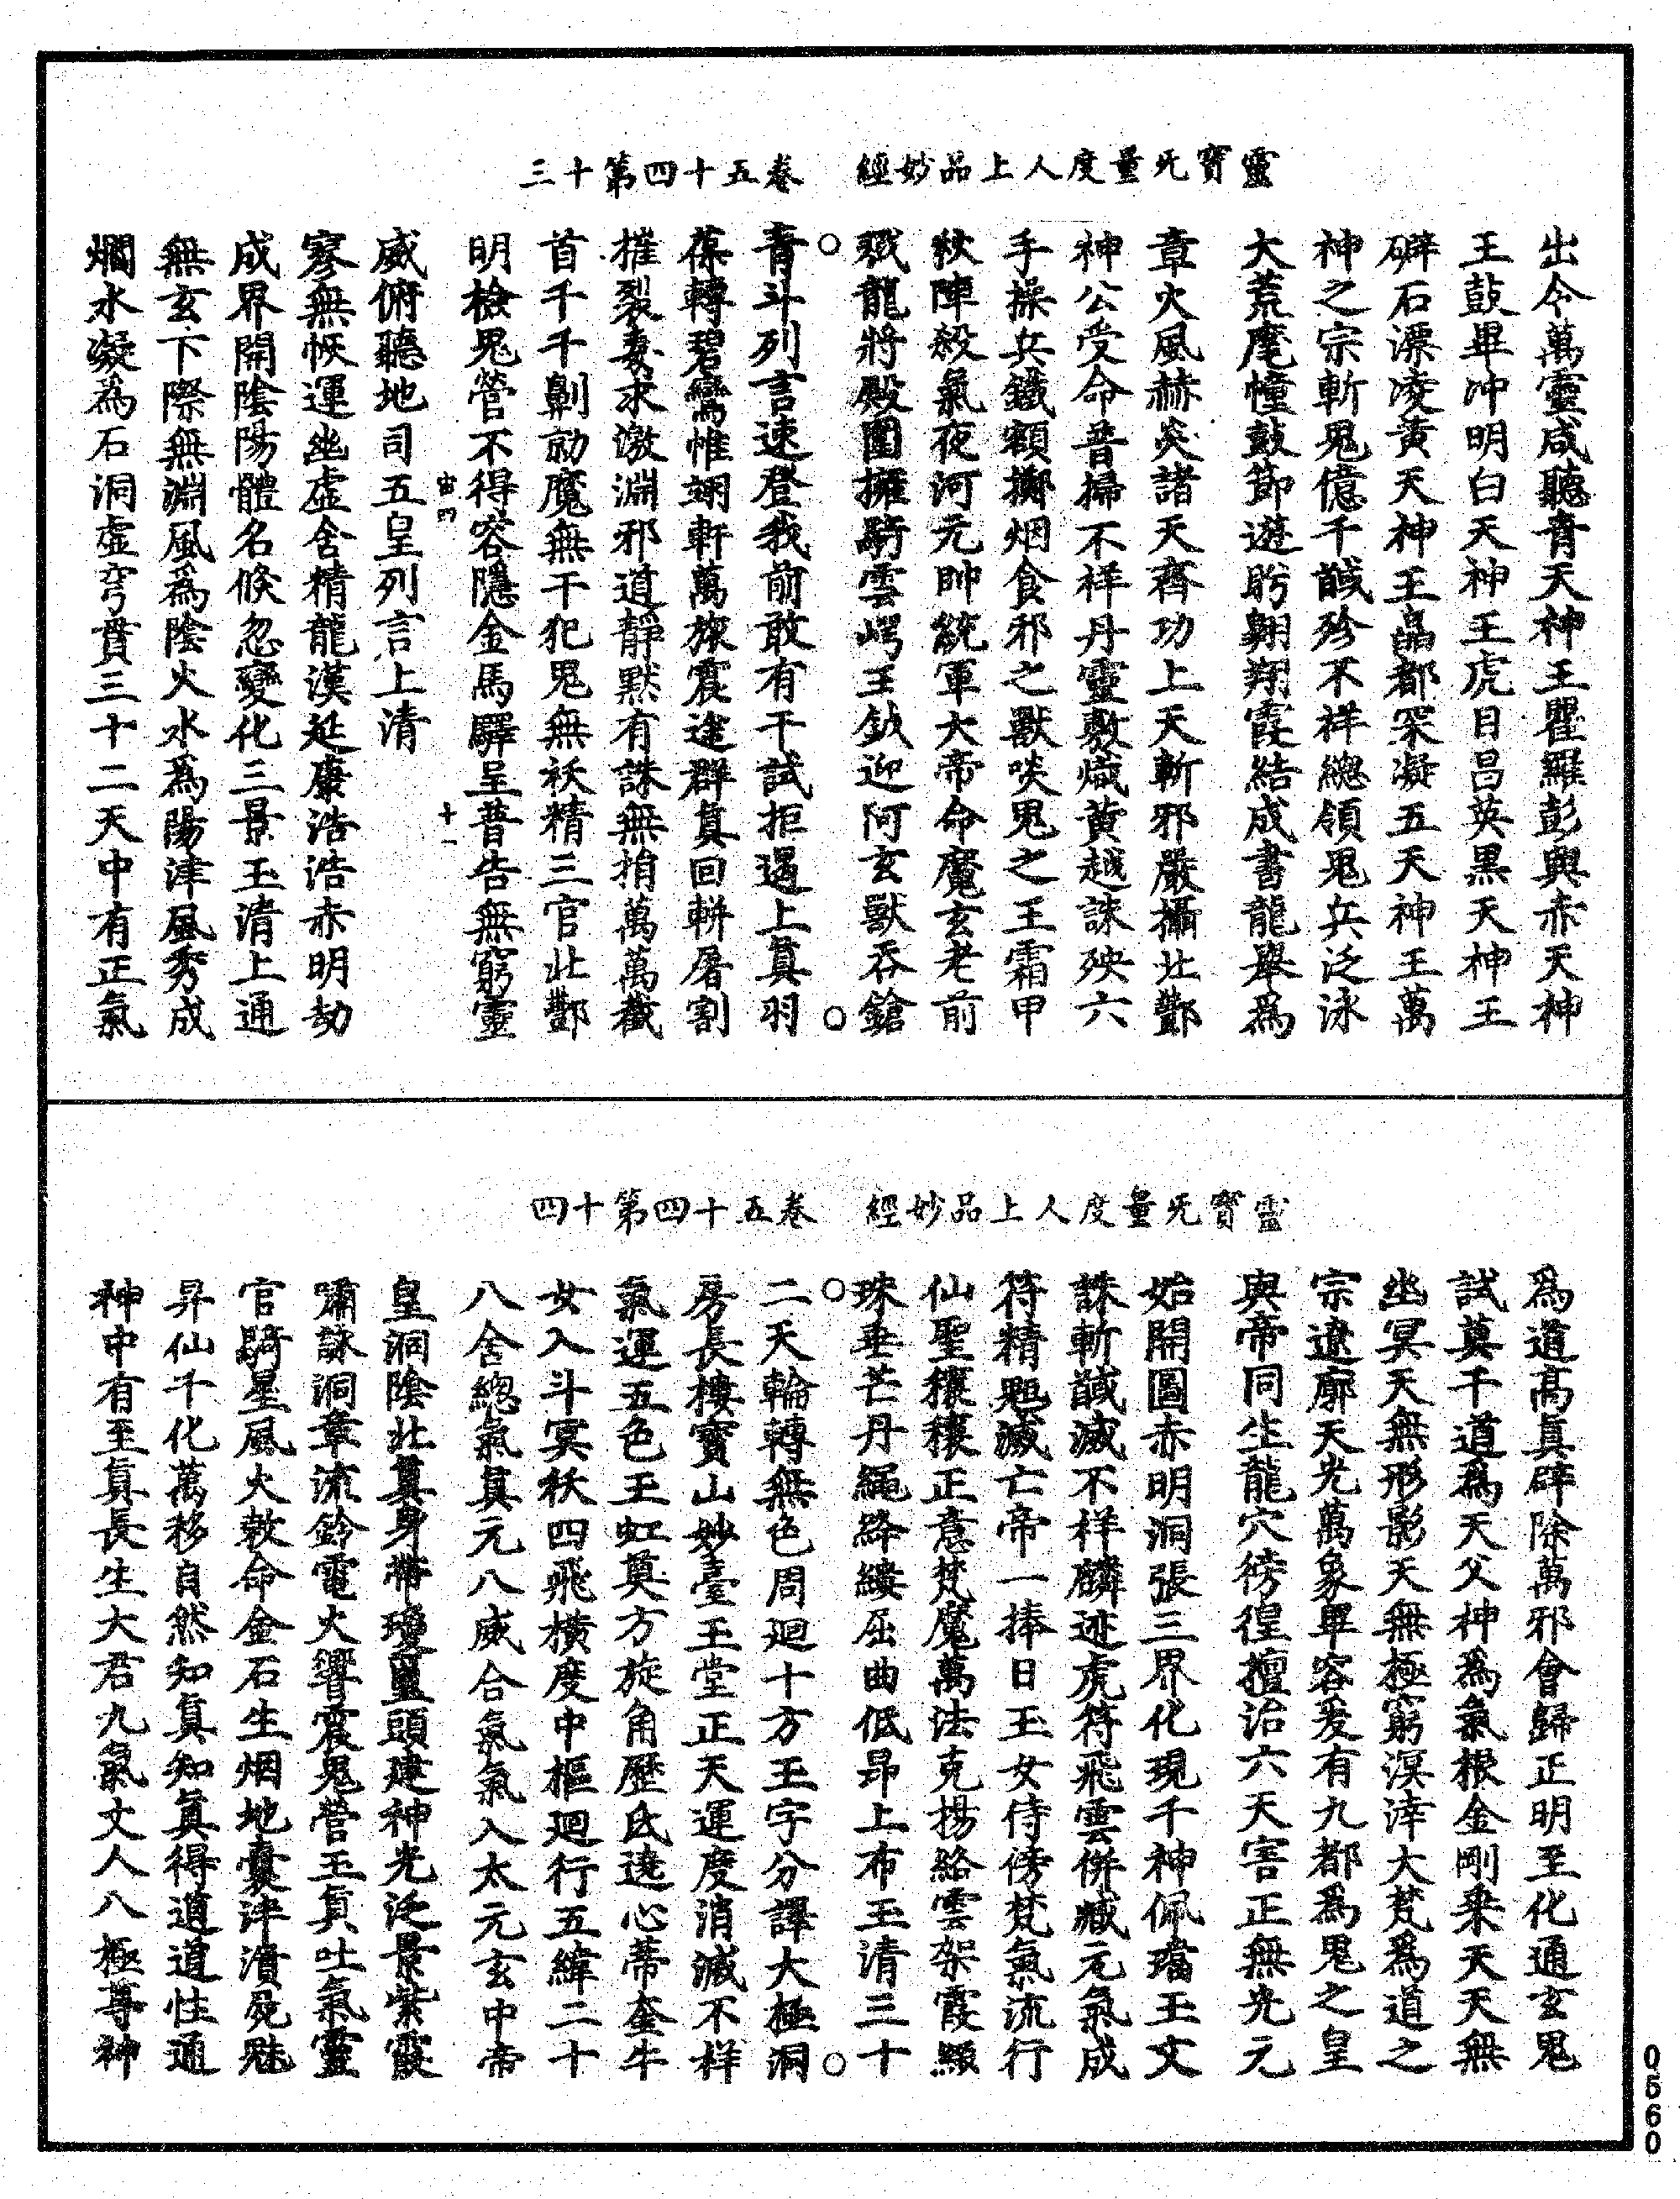 靈寶无量度人上品妙經　卷五十四第十三
出令萬靈咸聽青天神王瞿羅彭與赤天神
王鼓畢冲明白天神王虎日昌英黑天神王
磷石漂凌黃天天神王皛都罙凝五天神王萬
神之宗斬鬼億千馘殄不祥總領鬼兵泛泳
大荒麾幢鼓節遊眄翱翔霞結成書龍舉為
章火風赫炎諸天齊功上天斬邪嚴攝北酆
神公受命普掃不祥丹靈敷熾黃越誅殃六
手操兵鐵額擲烟食邪之獸啖鬼之王霜甲
秋陣殺氣夜河元帥統軍大帝命魔玄老前
戮龍將殿圍擁騎雲崿王鉞迎阿玄獸吞鎗
青斗列言速登我前敢有干試拒遏上眞羽
葆轉碧鸞帷翊軒萬旅震途群眞回軿屠割
摧裂妻求激淵邪道靜默有誅無捐萬萬截
首千千剿劾魔無干犯鬼無祅精三官北酆
明檢鬼營不得容隱金馬驛呈普告無窮靈
宙四　十一
威俯聽地司五皇列言上清
寥無惔運幽虛含精龍漢延康浩浩赤明劫
成界開陰陽體名倏忽變化三景玉清上通
無玄下際無淵風爲陰火水爲陽津風秀成
爛水凝為石洞虛穹貫三十二天中有正氣
靈寶无量度人上品妙經　卷五十四第十四
爲道高眞辟除萬邪會歸正明至化通玄鬼
試莫干道爲天父神爲氣根金剛乘天天無
幽冥天無形影天無極窮溟涬大梵爲道之
宗遼廓天光萬象畢容爰有九都爲鬼之皇
與帝同生龍穴徬徨擅治六天害正無光元
始開圖赤明洞張三界化現千神佩璫玉文
誅斬馘滅不祥麟迹虎符飛雲併臧元氣成
符精魁滅亡帝一捧日玉女侍傍梵氣流行
仙聖穰穰正意梵魔萬法克揚絡雲架霞顯
珠垂芒丹繩絳縷屈曲低昂上布玉清三十
二天輪轉無色周迴十方王字分譯大極洞
房長樓寶山妙臺玉堂正天運度消滅不祥
氣運五色王虹莫方旋角歷氐遶心蒂奎牛
女入斗冥祅四飛橫度中樞迴行五緯二十
八舍總氣眞元八威合氣氣入太元玄中帝
皇洞陰北眞身帶瓊璽頭建神光泛景紫霞
嘯詠洞章流鈴電火響震鬼營玉眞吐氣靈
官騎星風火敕命金石生烟地囊泮潰死魅
昇仙千化萬移自然知眞知眞得道道性通
神中有至眞長生大君九氣丈人八極尊神
0560